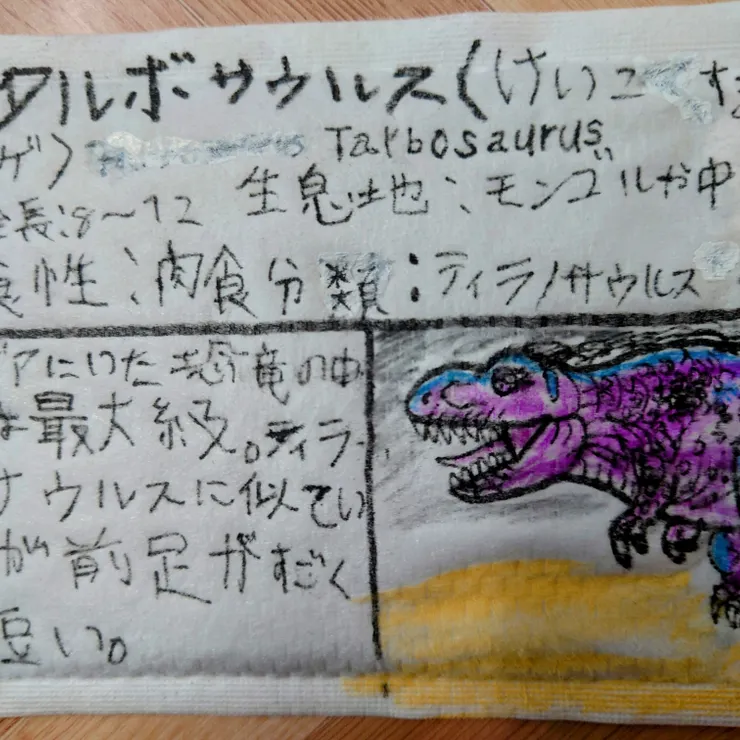 タルボサウルス(けいこくす
ゲ) Tarbosaurus
全長:8〜12 生息地:モンゴルや中
食性:肉食 分類:ティラノサウルス
ジアにいた恐竜の中
は最大級。ティラノ
サウルスに似てい
が前足がすごく
短い。